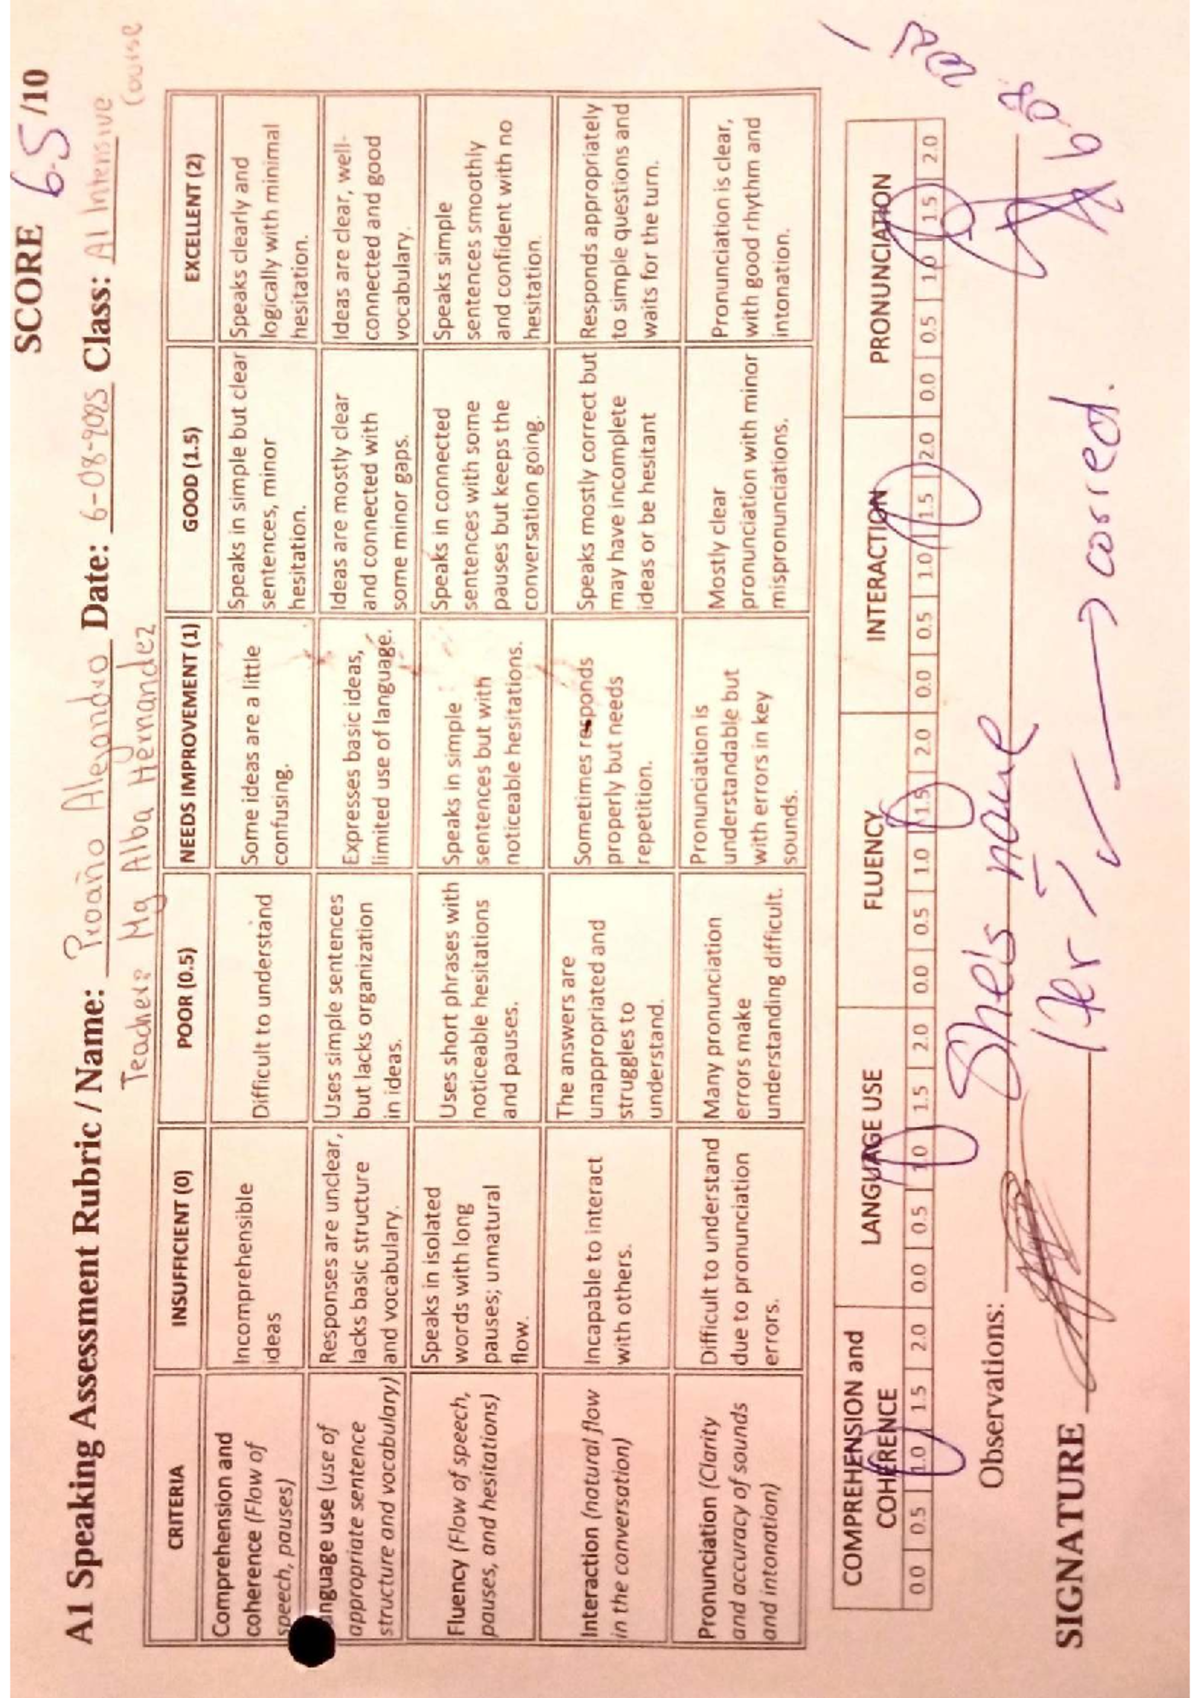 SCORE 6.5 /10
A1 Speaking Assessment Rubric / Name: Proaño Alejandro Date: 6-08-2025 Class: A1 Intensive
Course
Teacher: Mg Alba Hernandez
CRITERIA INSUFFICIENT (0) POOR (0.5) NEEDS IMPROVEMENT (1) GOOD (1.5) EXCELLENT (2)
Comprehension and coherence (Flow of speech, pauses) Incomprehensible ideas Difficult to understand Some ideas are a little confusing. Speaks in simple but clear sentences, minor hesitation. Speaks clearly and logically with minimal hesitation.
nguage use (use of appropriate sentence structure and vocabulary) Responses are unclear, lacks basic structure and vocabulary. Uses simple sentences but lacks organization in ideas. Expresses basic ideas, limited use of language. Ideas are mostly clear and connected with some minor gaps. Ideas are clear, well-connected and good vocabulary.
Fluency (Flow of speech, pauses, and hesitations) Speaks in isolated words with long pauses; unnatural flow. Uses short phrases with noticeable hesitations and pauses. Speaks in simple sentences but with noticeable hesitations. Speaks in connected sentences with some pauses but keeps the conversation going. Speaks simple sentences smoothly and confident with no hesitation.
Interaction (natural flow in the conversation) Incapable to interact with others. The answers are unappropriated and struggles to understand. Sometimes responds properly but needs repetition. Speaks mostly correct but may have incomplete ideas or be hesitant Responds appropriately to simple questions and waits for the turn.
Pronunciation (Clarity and accuracy of sounds and intonation) Difficult to understand due to pronunciation errors. Many pronunciation errors make understanding difficult. Pronunciation is understandable but with errors in key sounds. Mostly clear pronunciation with minor mispronunciations. Pronunciation is clear, with good rhythm and intonation.
COMPREHENSION and COHERENCE LANGUAGE USE FLUENCY INTERACTION PRONUNCIATION
0.0 0.5 1.0 1.5 2.0 0.0 0.5 1.0 1.5 2.0 0.0 0.5 1.0 1.5 2.0 0.0 0.5 1.0 1.5 2.0 0.0 0.5 1.0 1.5 2.0
Observations: She's name
Her
SIGNATURE